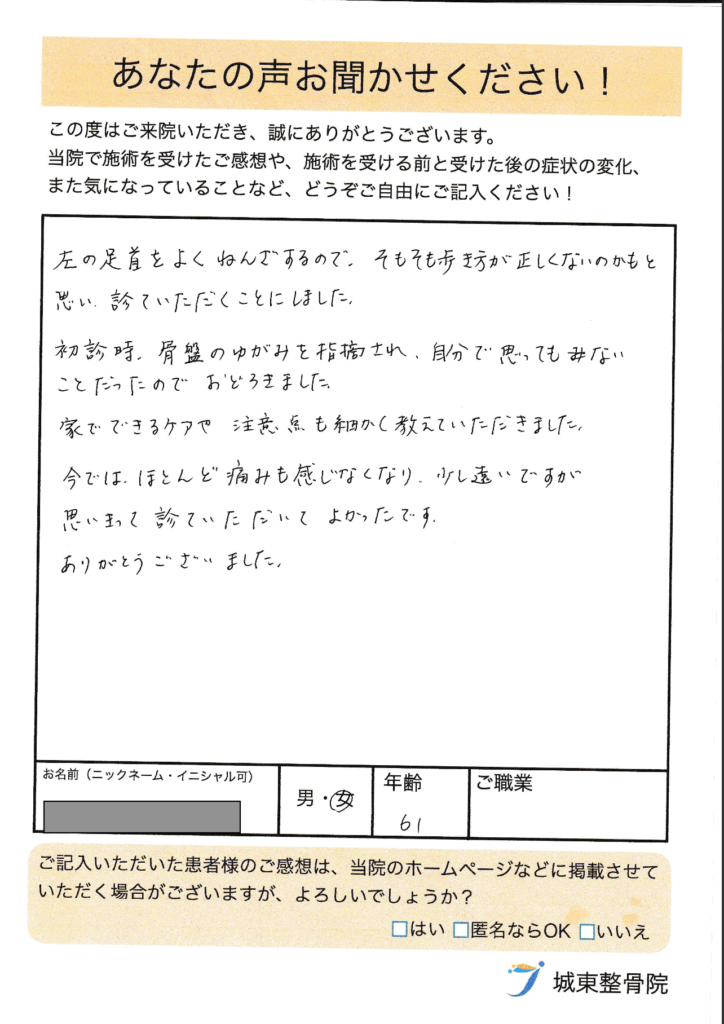 あなたの声お聞かせください！
この度はご来院いただき、誠にありがとうございます。
当院で施術を受けたご感想や、施術を受ける前と受けた後の症状の変化、
また気になっていることなど、どうぞご自由にご記入ください！
左の足首をよくねんざするので、そもそも歩き方が正しくないのかもと
思い、診ていただくことにしました。
初診時、骨盤のゆがみを指摘され、自分で思ってもみない
ことだったのでおどろきました。
家でできるケアや注意点も細かく教えていただきました。
今では、ほとんど痛みも感じなくなり、少し遠いですが
思いきって診ていただいてよかったです。
ありがとうございました。
お名前（ニックネーム・イニシャル可）
男・女
年齢
61
ご職業
ご記入いただいた患者様のご感想は、当院のホームページなどに掲載させて
いただく場合がございますが、よろしいでしょうか？
□はい □匿名ならOK □いいえ
城東整骨院